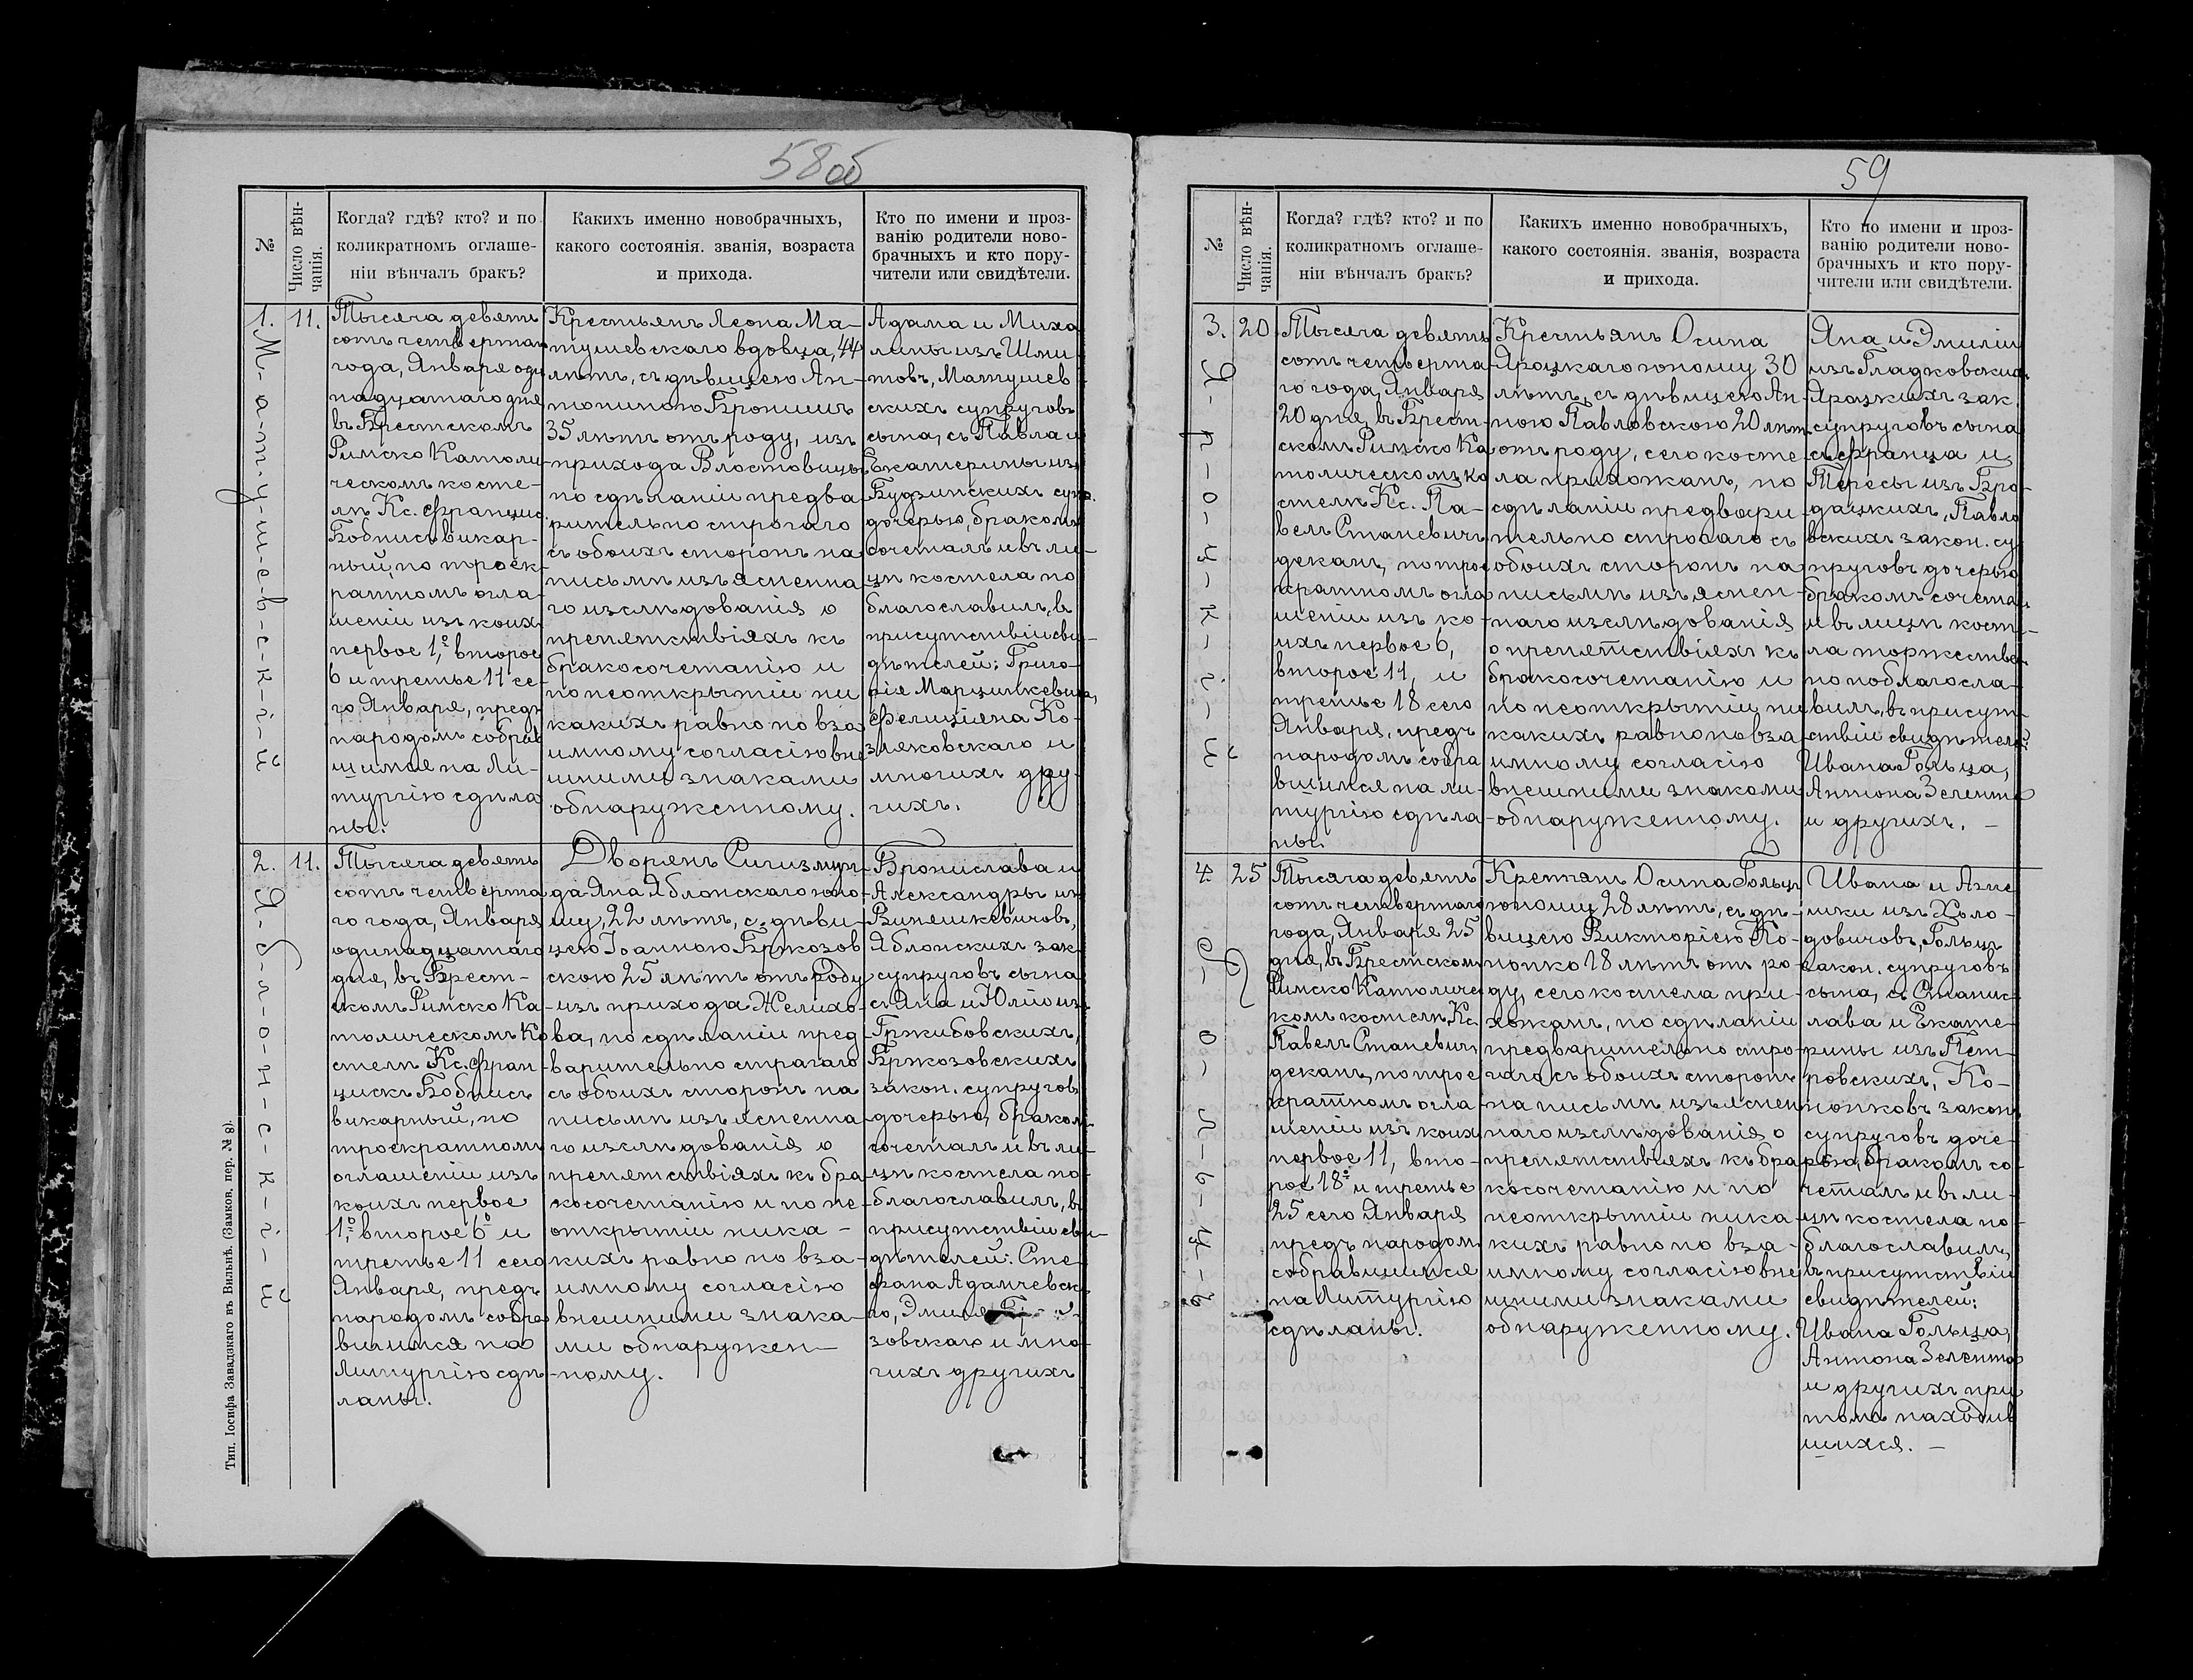 58об
№
Число вѣн-
чанія.
Когда? гдѣ? кто? и по
коликратномъ оглаше-
ніи вѣнчалъ бракъ?
Какихъ именно новобрачныхъ,
какого состоянія. званія, возраста
и прихода.
Кто по имени и проз-
ванію родители ново-
брачныхъ и кто пору-
чители или свидѣтели.
1.
М-а-т-у-ш-е-в-с-к-і-й
11.
Тысяча девять
сотъ четверта
го
года, Января оди
надцатаго дня
въ Брестскомъ
Римско Католи
ческомъ косте-
лѣ Кс. Францис.
Бобнисъ викар-
ный, по троек-
ратномъ огла-
шеніи изъ коих
первое 1,º второе
6 и третье 11 се-
го Января, предъ
народомъ собрав
шимся на Ли-
тургію сдѣла
ны.
Крестьянъ Леона Ма-
тушевскаго вдовца, 44
лѣтъ, съ дѣвицею Ан-
тониною Бронишъ
35 лѣтъ отъ роду, изъ
прихода Влостовицы
по сдѣланіи предва-
рительно строгаго
съ обоихъ сторонъ на
письмѣ изъясненна
го изслѣдованія о
препятствіяхъ къ
бракосочетанію и
по неоткрытіи ни
какихъ равно по вза
имному согласію внѣ
шними знаками
обнаруженному.
Адама и Миха
лины изъ Шми-
товъ, Матушев
скихъ супруговъ
сына, съ Павла и
Екатерины изъ
Будзинскихъ супр.
дочерью, бракомъ
сочеталъ и въ ли-
цѣ костела по
благославилъ, въ
присутствіи сви-
дѣтелей: Григо-
рія Марцинкевича,
Фелиціяна Ко-
зляковскаго и
многихъ дру-
гихъ.
2.
Я-б-л-о-н-с-к-і-й
11.
Тысяча девять
сотъ четверта
го года, Января
одинадцатаго
дня, въ Брест-
скомъ Римско Ка
толическомъ Ко
стелѣ Кс. Фран
цискъ Бобнисъ
викарный, по
троекратномъ
оглашеніи изъ
коихъ первое
1,º второе 6º и
третье 11 сего
Января, предъ
народомъ собра
вшимся на
Литургію сдѣ-
ланы.
Дворянъ Сигизмун-
да-Яна Яблонскаго юно-
шу, 22 лѣтъ, съ дѣви-
цею Іоанною Бржозов
скою 25 лѣтъ отъ роду
изъ прихода Желихо-
ва, по сдѣланіи пред
варительно страгаго
съ обоихъ сторонъ на
письмѣ изъясненна
го изслѣдованія о
препятствіяхъ къ бра
косочетанію и по не-
открытіи ника-
кихъ равно по вза-
имному согласію
внешними знака-
ми обнаружен-
ному.
Бронислава и
Александры из
Винешкевичовъ,
Яблонскихъ зак.
супруговъ сына
съ Яна и Юліи изъ
Гржибовскихъ,
Бржозовскихъ
закон. супругов
дочерью, бракомъ
сочеталъ и въ ли-
цѣ костела по-
благославилъ, въ
присутствіи сви-
дѣтелей: Сте-
фана Адамчевска
го, Эмиля
зовскаго и мно-
гихъ другихъ
Тип. Іосифа Завадзкаго въ Вильнѣ. (Замков. пер. № 8).
59
№
Число вѣн-
чанія.
Когда? гдѣ? кто? и по
коликратномъ оглаше-
ніи вѣнчалъ бракъ?
Какихъ именно новобрачныхъ,
какого состоянія. званія, возраста
и прихода.
Кто по имени и проз-
ванію родители ново-
брачныхъ и кто пору-
чители или свидѣтели.
3.
Я-р-о-ц-к-і-й
20
Тысяча девять
сотъ четверта-
го года, Января
20 дня, въ Брест-
скомъ Римско Ка
толическомъ ко
стелѣ Кс. Па-
велъ Станевичъ
деканъ, по трое
кратномъ огла
шеніи изъ ко-
ихъ первое 6,
второе 11, и
третье 18 сего
Января, предъ
народомъ собра
вшимся на ли-
тургію сдѣла
ны.
Крестьянъ Осипа
Яроцкаго юношу 30
лѣтъ, съ дѣвицею Ан-
ною Павловскою 20 лѣтъ
отъ роду, сего косте-
ла прихожанъ, по
сдѣланіи предвари-
тельно строгаго съ
обоихъ сторонъ на
письмѣ изъяснен-
наго изслѣдованія
о препятствіяхъ къ
бракосочетанію и
по неоткрытіи ни
какихъ равно по вза-
имному согласію
внешними знаками
обнаруженному.
Яна и Эмиліи
изъ Гладковских
Яроцкихъ зак.
супруговъ сына
съ Франца и
Тересы изъ Бро-
дацкихъ, Павло
вскихъ закон. су
пруговъ дочерью
бракомъ сочетал
и въ лицѣ косте-
ла торжествен
но поблагосла-
вилъ, въ присут-
ствіи свидѣтелей:
Ивана Гольца,
Антона Зелента
и другихъ. —
4.
Г-о-л-ь-ц-ъ
25
Тысяча девять
сотъ четвертаго
года, Января 25
дня, въ Брестскомъ
Римско Католиче
комъ костелѣ, Кс.
Павелъ Станевичъ
деканъ, по трое
кратномъ огла
шеніи изъ коих
первое 11, вто-
рое 18º и третье
25 сего Января
предъ народомъ
собравшимся
на Литургію
сдѣланы.
Крестьянъ Осипа Гольца
юношу 28 лѣтъ, съ дѣ-
вицею Викторіею Ко-
нопко 18 лѣтъ отъ ро-
ду, сего костела при-
хожанъ, по сдѣланіи
предварительно стро-
гаго съ обоихъ сторонъ
на письмѣ изъяснен
наго изслѣдованія о
препятствіяхъ къ бра
косочетанію и по
неоткрытіи ника-
кихъ равно по вза-
имному согласію внѣ
шними знаками
обнаруженному.
Ивана и Агне
шки изъ Холо-
довичовъ, Гольцъ
закон. супруговъ
сына, съ Станис-
лава и Екате-
рины изъ Пет-
ровскихъ, Ко-
нопковъ закон.
супруговъ доче-
рью, бракомъ со-
четалъ и въ ли-
цѣ костела по-
благославилъ,
въ присутствіи
свидѣтелей:
Ивана Гольца,
Антона Зелента
и другихъ при
томъ находив
шихся. —